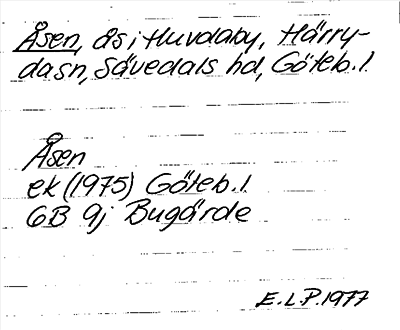 Åsen, ås i Huvdaby, Härry-
dasn, Sävedals hd, Göteb. l.
Åsen
ek (1975) Göteb. l.
6B 9j Bugärde
E.L.P. 1977